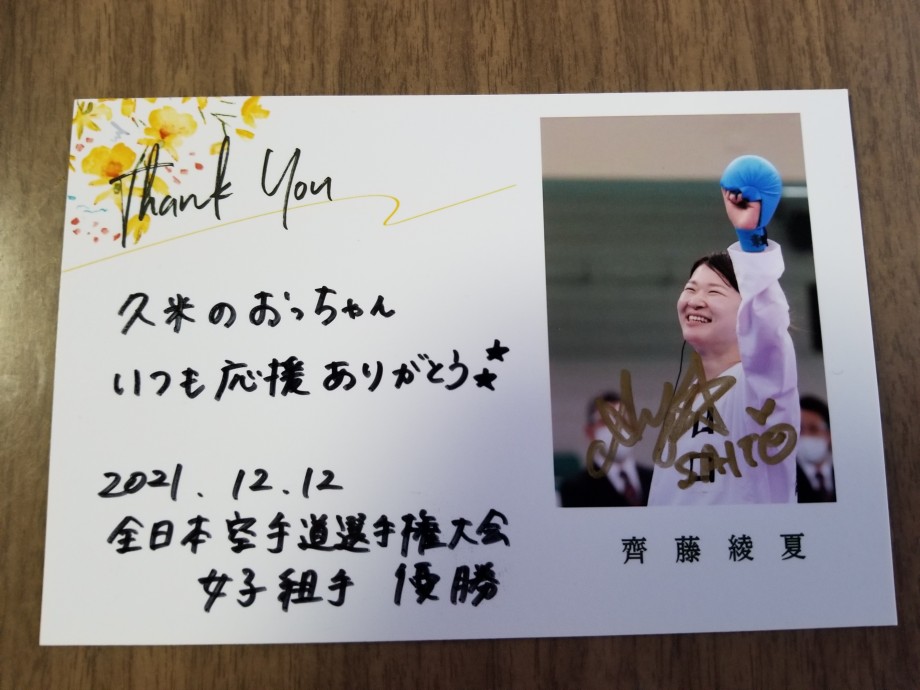 Thank You
久米のおっちゃん
いつも応援ありがとう★★
2021.12.12
全日本空手道選手権大会
女子組手 優勝
SAITO
齊藤綾夏